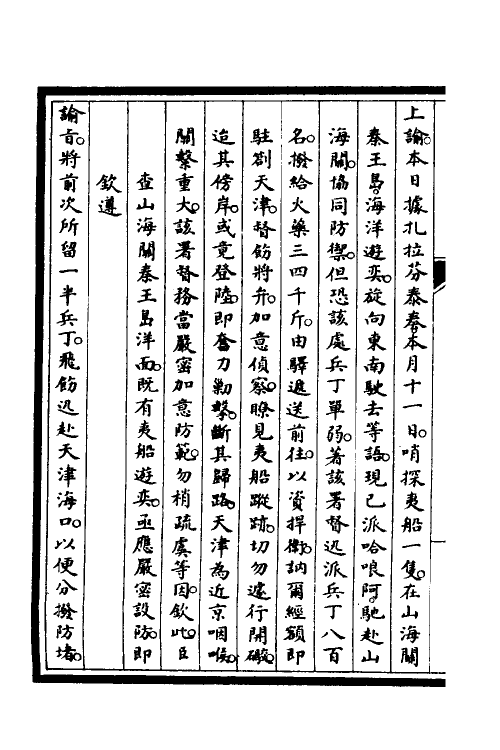 上諭。本日據扎拉芬泰奏。本月十一日。哨探夷船一隻。在山海關
秦王島。海洋遊奕。旋向東南駛去等語。現已派哈哴阿。馳赴山
海關。協同防禦。但恐該處兵丁單弱。著該署督迅派兵丁八百
名。撥給火藥三四千斤。由驛遞送前往。以資捍衛。訥爾經額即
駐劄天津。督飭將弁。加意偵察。瞭見夷船蹤跡。切勿遽行開礮。
迨其傍岸。或竟登陸。即奮力勦擊。斷其歸路。天津為近京咽喉。
關繫重大。該署督務當嚴密加意防範。勿稍疏虞等因。欽此。臣
查山海關秦王島洋面。既有夷船遊奕。亟應嚴密設防。即
欽遵
諭旨。將前次所留一半兵丁。飛飭迅赴天津海口。以便分撥防堵。